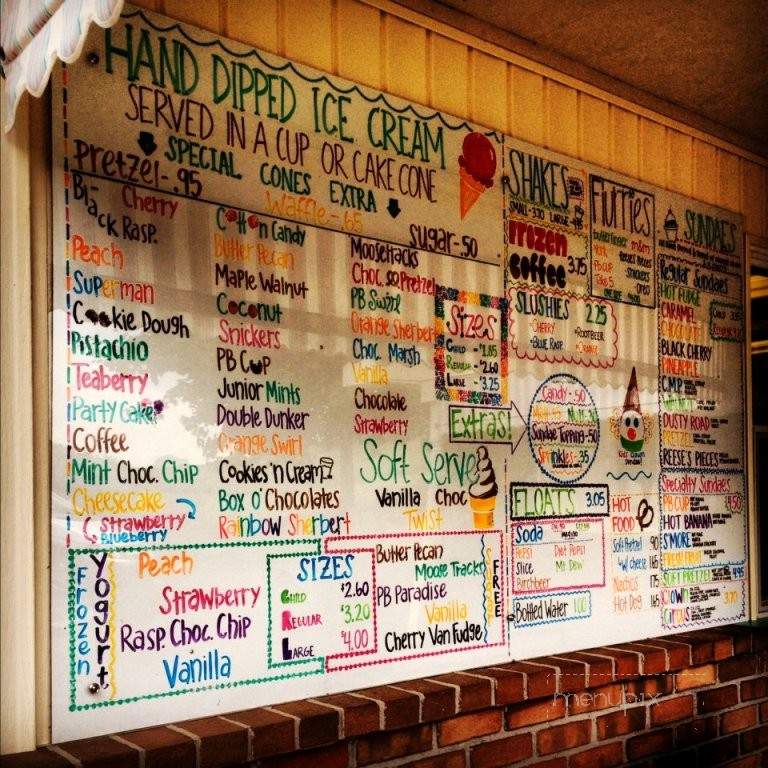 HAND DIPPED ICE CREAM
SERVED IN A CUP OR CAKE CONE
SPECIAL CONES EXTRA
Pretzel-.95
Waffle-.65
Sugar-50
Black Cherry
Black Rasp.
Peach
Superman
Cookie Dough
Pistachio
Teaberry
Party Cake
Coffee
Mint Choc. Chip
Cheesecake
Strawberry
Blueberry
Cotton Candy
Butter Pecan
Maple Walnut
Coconut
Snickers
PB Cup
Junior Mints
Double Dunker
Orange Swirl
Cookies 'n Cream
Box O' Chocolates
Rainbow Sherbert
Moosetracks
Choc. so Pretzel
PB Swirl
Orange Sherbert
Choc. Marsh
Vanilla
Chocolate
Strawberry
Sizes
Child - 1.85
Regular - 2.60
Large - 3.25
Extras!
Candy-.50
Sundae Topping-.50
Sprinkles-.35
Soft Serve
Vanilla Choc
Twist
Frozen Yogurt
Peach
Strawberry
Rasp. Choc. Chip
Vanilla
SIZES
CHILD $2.60
REGULAR $3.20
LARGE $4.00
Butter Pecan
Moose Tracks
PB Paradise
Vanilla
Cherry Van Fudge
FREE
SHAKES
Frozen Coffee 3.75
SLUSHIES 2.25
CHERRY
ROOTBEER
BLUE RASP
ORANGE
Flurries
butterfinger
m&m
reeses pieces
york
PB CUP
snickers
Take 5
oreo
FLOATS 3.05
Soda
PEPSI
Diet Pepsi
Slice
Mt Dew
Birchbeer
Bottled Water 1.00
Kids Clown Sundae
HOT FOOD
Soft Pretzel 90
w/ cheese 165
Nachos 175
Hot Dog 165
SUNDAES
Regular Sundaes
HOT FUDGE
CARAMEL
CHOCOLATE
BLACK CHERRY
PINEAPPLE
C.M.P.
DUSTY ROAD
PRETZEL
REESE'S PIECES
Specialty Sundaes
PB CUP
4.50
HOT BANANA
S'MORE
FRESH FRUIT
SOFT PRETZEL 4.95
CLOWN
CIRCUS
3.70
menupix